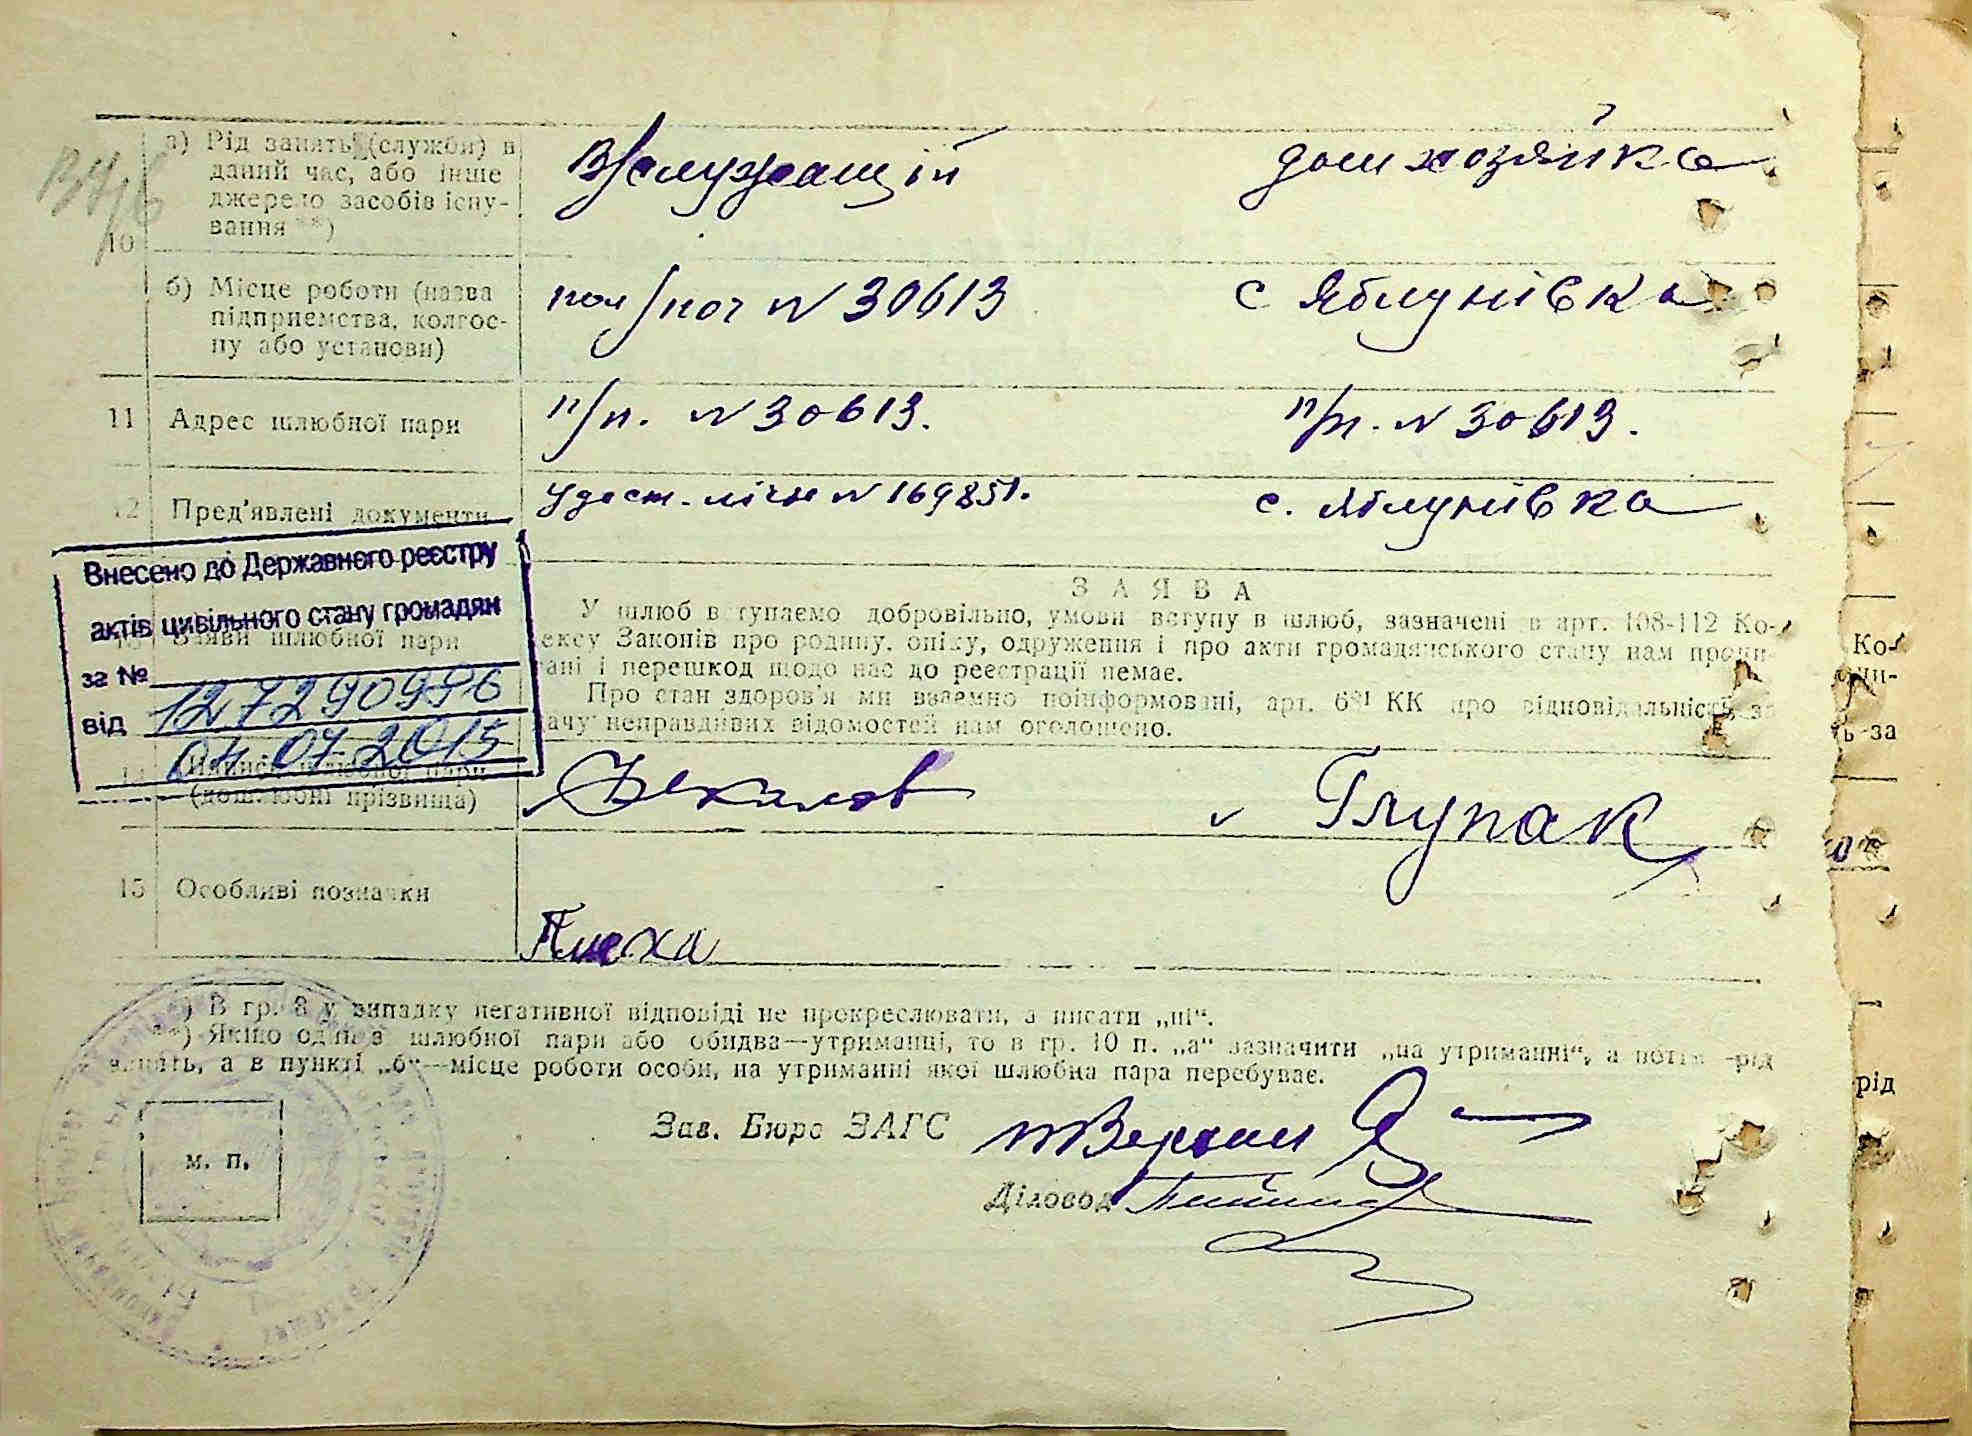 а) Рід занять (служби) в даний час, або інше джерело засобів існування **)
В/служащій
дом хозяйка
10
б) Місце роботи (назва підприємства, колгоспу або установи)
пол/поч N 30613
с Яблунівка
11 Адрес шлюбної пари
п/п. N 30613.
п/п. N 30613.
12 Пред'явлені документи
Удост. лічне N 169851.
с. Яблунівка
Внесено до Державного реєстру
актів цивільного стану громадян
за № 127290996
від 04.07.2015
Заяви шлюбної пари
ЗАЯВА
У шлюб вступаємо добровільно, умови вступу в шлюб, зазначені в арт. 108-112 Ко-
ексу Законів про родину, опіку, одруження і про акти громадянського стану нам прочи-
ані і перешкод щодо нас до реєстрації немає.
Про стан здоров'я ми взаємно поінформовані, арт. 6³¹ КК про відповідальність за
ачу неправдивих відомостей нам оголошено.
14 Підписи шлюбної пари
(дошлюбні прізвища)
Глупак
15 Особливі позначки
*) В гр. 8 у випадку негативної відповіді не прокреслювати, а писати „ні“.
**) Якщо один з шлюбної пари або обидва—утриманці, то в гр. 10 п. „а“ зазначити „на утриманні“, а потім -рід
занять, а в пункті „б“—місце роботи особи, на утриманні якої шлюбна пара перебуває.
Зав. Бюро ЗАГС
м. п.
Діловод
Ко-
ь за
рід